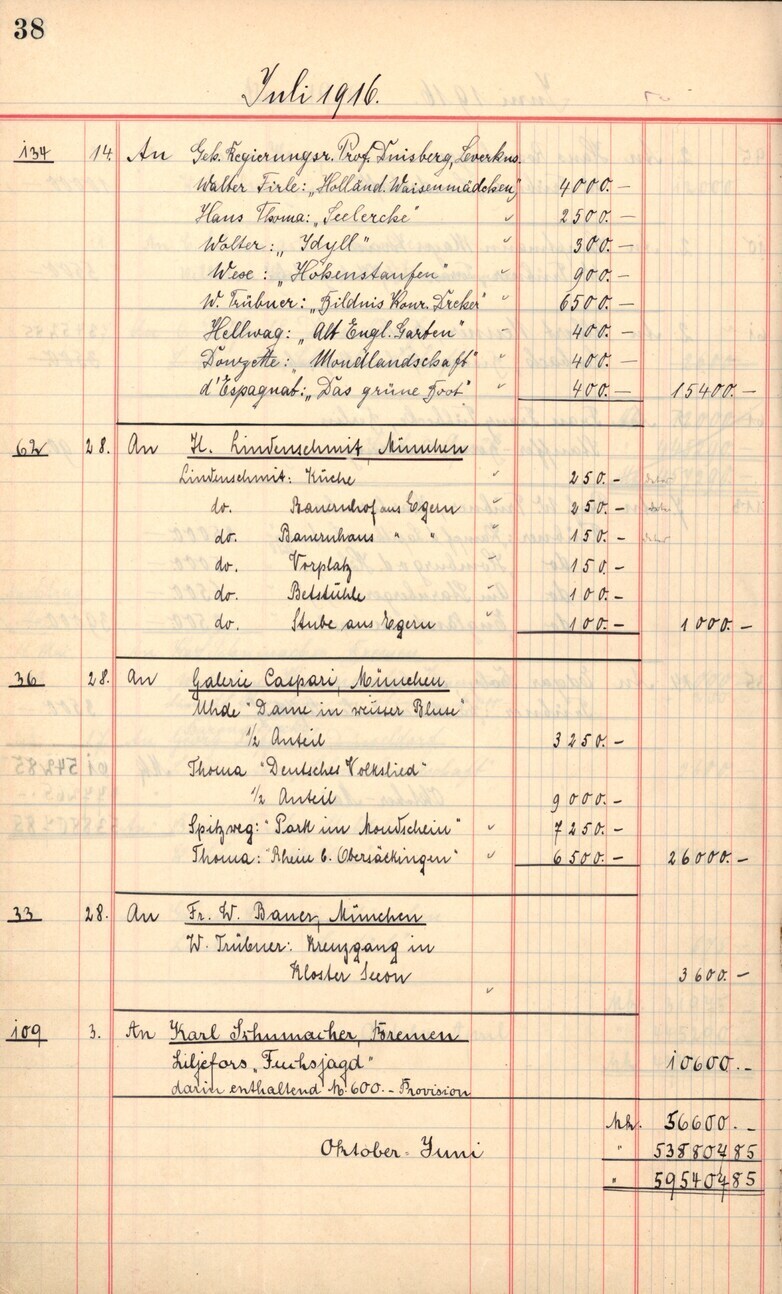 38
Juli 1916.
134 14. An Geh. Regierungsr. Prof. Duisberg, Leverkus.
Walter Firle: „Holländ. Waisenmädchen" 4000.—
Hans Thoma: „Seelerche" " 2500.—
Wolter: „Idyll" " 300.—
Wexe: „Hohenstaufen" " 900.—
W. Trübner: „Bildnis Konr. Dreher" " 6500.—
Hellwag: „Alt Engl. Garten" " 400.—
Douzette: „Mondlandschaft" " 400.—
d'Espagnat: „Das grüne Boot" " 400.— 15400.—
62 28. An H. Lindenschmit, München
Lindenschmit: Küche " 250.—
do. Bauernhof aus Egern " 250.—
do. Bauernhaus " " 150.—
do. Vorplatz " 150.—
do. Betstühle " 100.—
do. Stube aus Egern " 100.— 1000.—
36 28. An Galerie Caspari, München
Uhde "Dame in weisser Bluse"
1/2 Anteil 3250.—
Thoma "Deutsches Volkslied"
1/2 Anteil 9000.—
Spitzweg: "Park im Mondschein" " 7250.—
Thoma: "Rhein b. Obersäckingen" " 6500.— 26000.—
33 28. An Fr. W. Bauer, München
W. Trübner: Kreuzgang in
Kloster Seeon 3600.—
"
109 3. An Karl Schumacher, Bremen
Liljefors „Fuchsjagd" 10600.—
darin enthaltend M. 600.— Provision
Mk. 56600.—
Oktober-Juni " 538807 85
" 595407 85